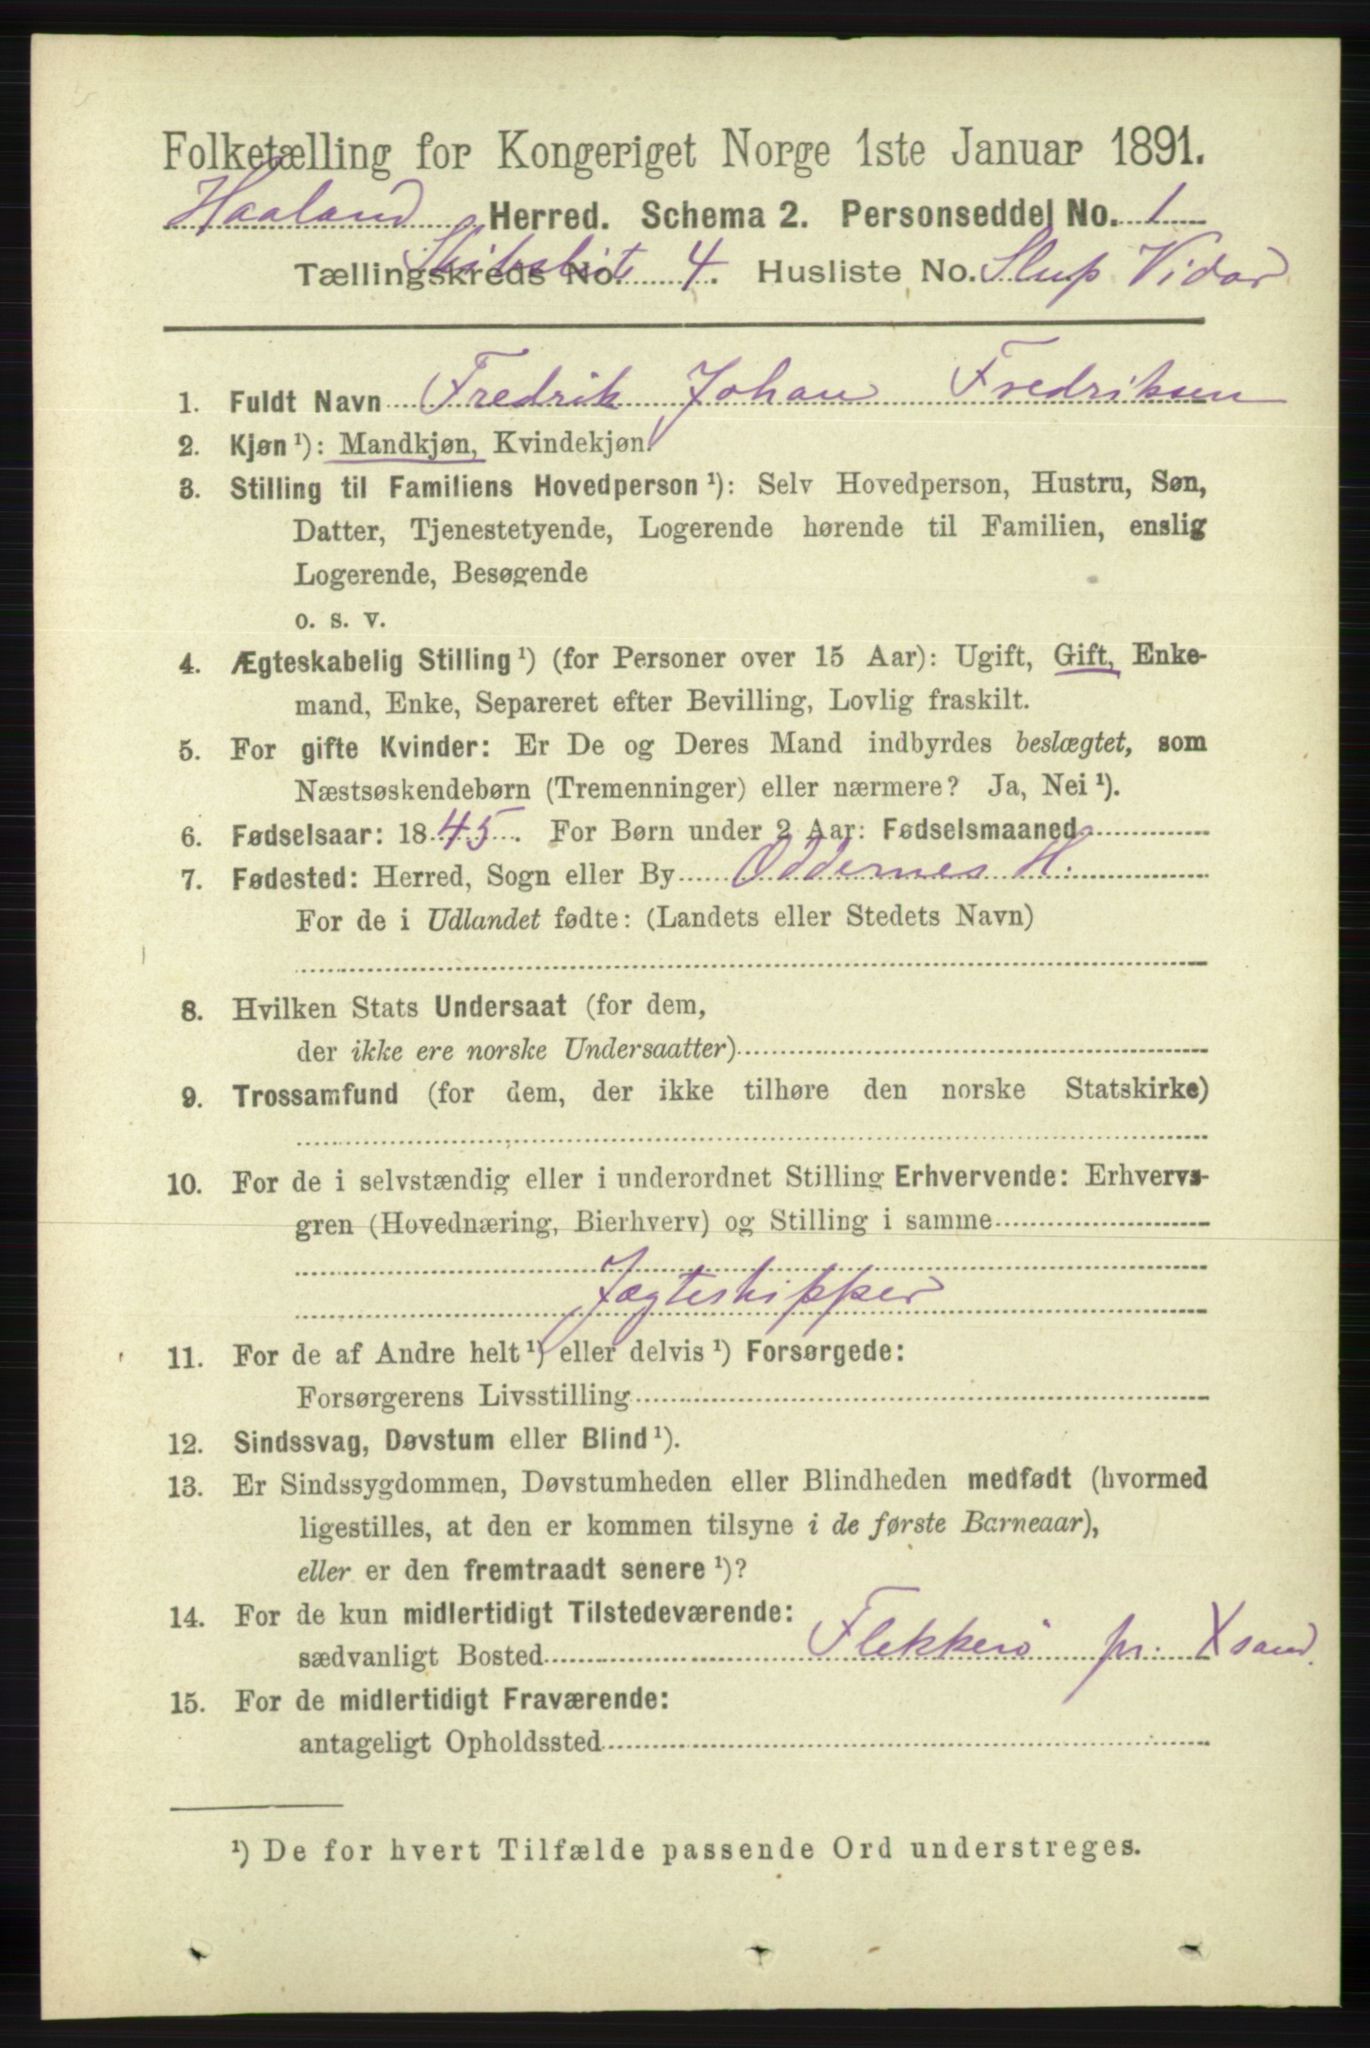 Folketælling for Kongeriget Norge 1ste Januar 1891.
Haaland Herred. Schema 2. Personseddel No. 1
Tællingskreds No. Skibsliste 4. Husliste No. Slup Vidar
1. Fuldt Navn Fredrik Johan Fredriksen
2. Kjøn ¹): Mandkjøn, Kvindekjøn.
3. Stilling til Familiens Hovedperson ¹): Selv Hovedperson, Hustru, Søn,
Datter, Tjenestetyende, Logerende hørende til Familien, enslig
Logerende, Besøgende
o. s. v.
4. Ægteskabelig Stilling ¹) (for Personer over 15 Aar): Ugift, Gift, Enke-
mand, Enke, Separeret efter Bevilling, Lovlig fraskilt.
5. For gifte Kvinder: Er De og Deres Mand indbyrdes beslægtet, som
Næstsøskendebørn (Tremenninger) eller nærmere? Ja, Nei ¹).
6. Fødselsaar: 1845. For Børn under 2 Aar: Fødselsmaaned
7. Fødested: Herred, Sogn eller By Oddernes H.
For de i Udlandet fødte: (Landets eller Stedets Navn)
8. Hvilken Stats Undersaat (for dem,
der ikke ere norske Undersaatter)
9. Trossamfund (for dem, der ikke tilhøre den norske Statskirke)
10. For de i selvstændig eller i underordnet Stilling Erhvervende: Erhvervs-
gren (Hovednæring, Bierhverv) og Stilling i samme
Jægteskipper
11. For de af Andre helt ¹) eller delvis ¹) Forsørgede:
Forsørgerens Livsstilling
12. Sindssvag, Døvstum eller Blind ¹).
13. Er Sindssygdommen, Døvstumheden eller Blindheden medfødt (hvormed
ligestilles, at den er kommen tilsyne i de første Barneaar),
eller er den fremtraadt senere ¹)?
14. For de kun midlertidigt Tilstedeværende:
sædvanligt Bosted Flekkerø pr. Xsand.
15. For de midlertidigt Fraværende:
antageligt Opholdssted
¹) De for hvert Tilfælde passende Ord understreges.